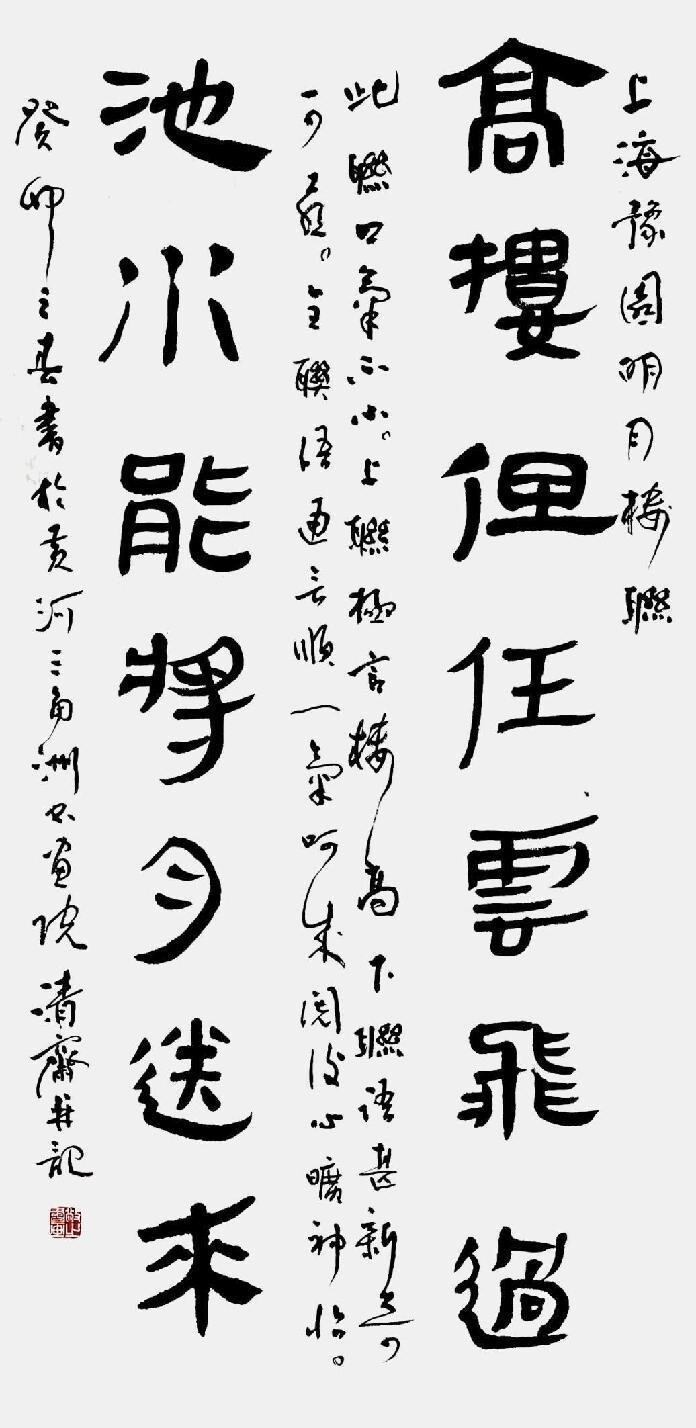 上海豫園明月樓聯
高樓但任雲飛過
此聯口氣不小。上聯極言樓高下聯語甚新奇
全聯語通言順一氣呵成閱後心曠神怡。
池小能將月送來
癸卯之春書於黃河三角洲書畫院清齋并記